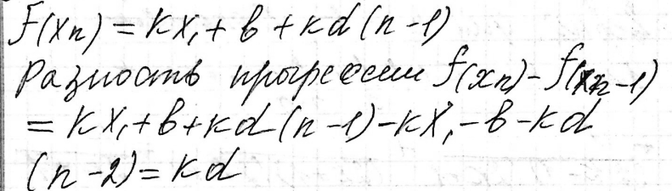 f(xn) = kx₁ + b + kd(n-1)
Разность прогрессии f(xn) - f(xn-1)
= kx₁ + b + kd(n-1) - kx₁ - b - kd
(n-2) = kd